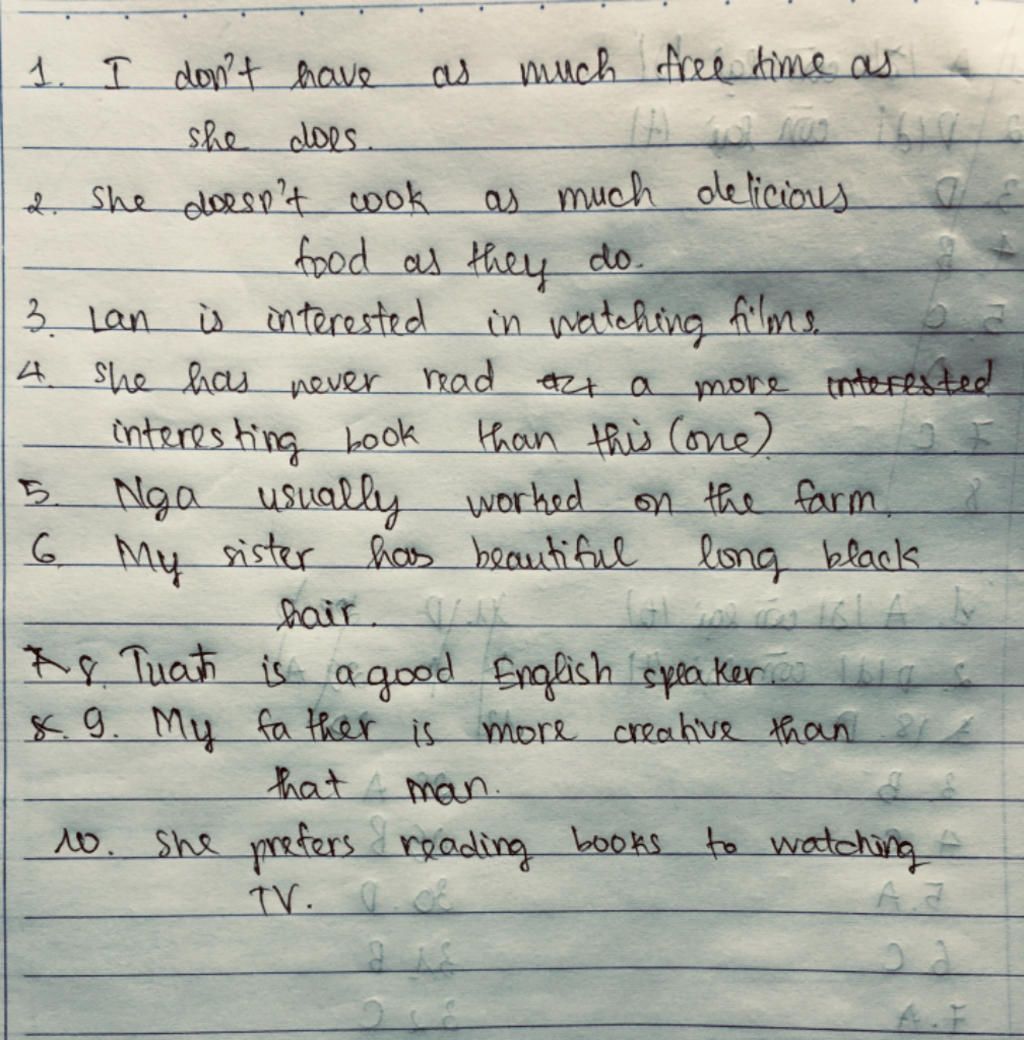 1. I don't have as much free time as
she does.
2. She doesn't cook as much delicious
food as they do.
3. Lan is interested in watching films.
4. She has never read a more interested
interesting book than this (one)
5. Nga usually worked on the farm.
6. My sister has beautiful long black
hair.
7 8. Tuan is a good English speaker.
8. 9. My father is more creative than
that man.
10. She prefers reading books to watching
TV.